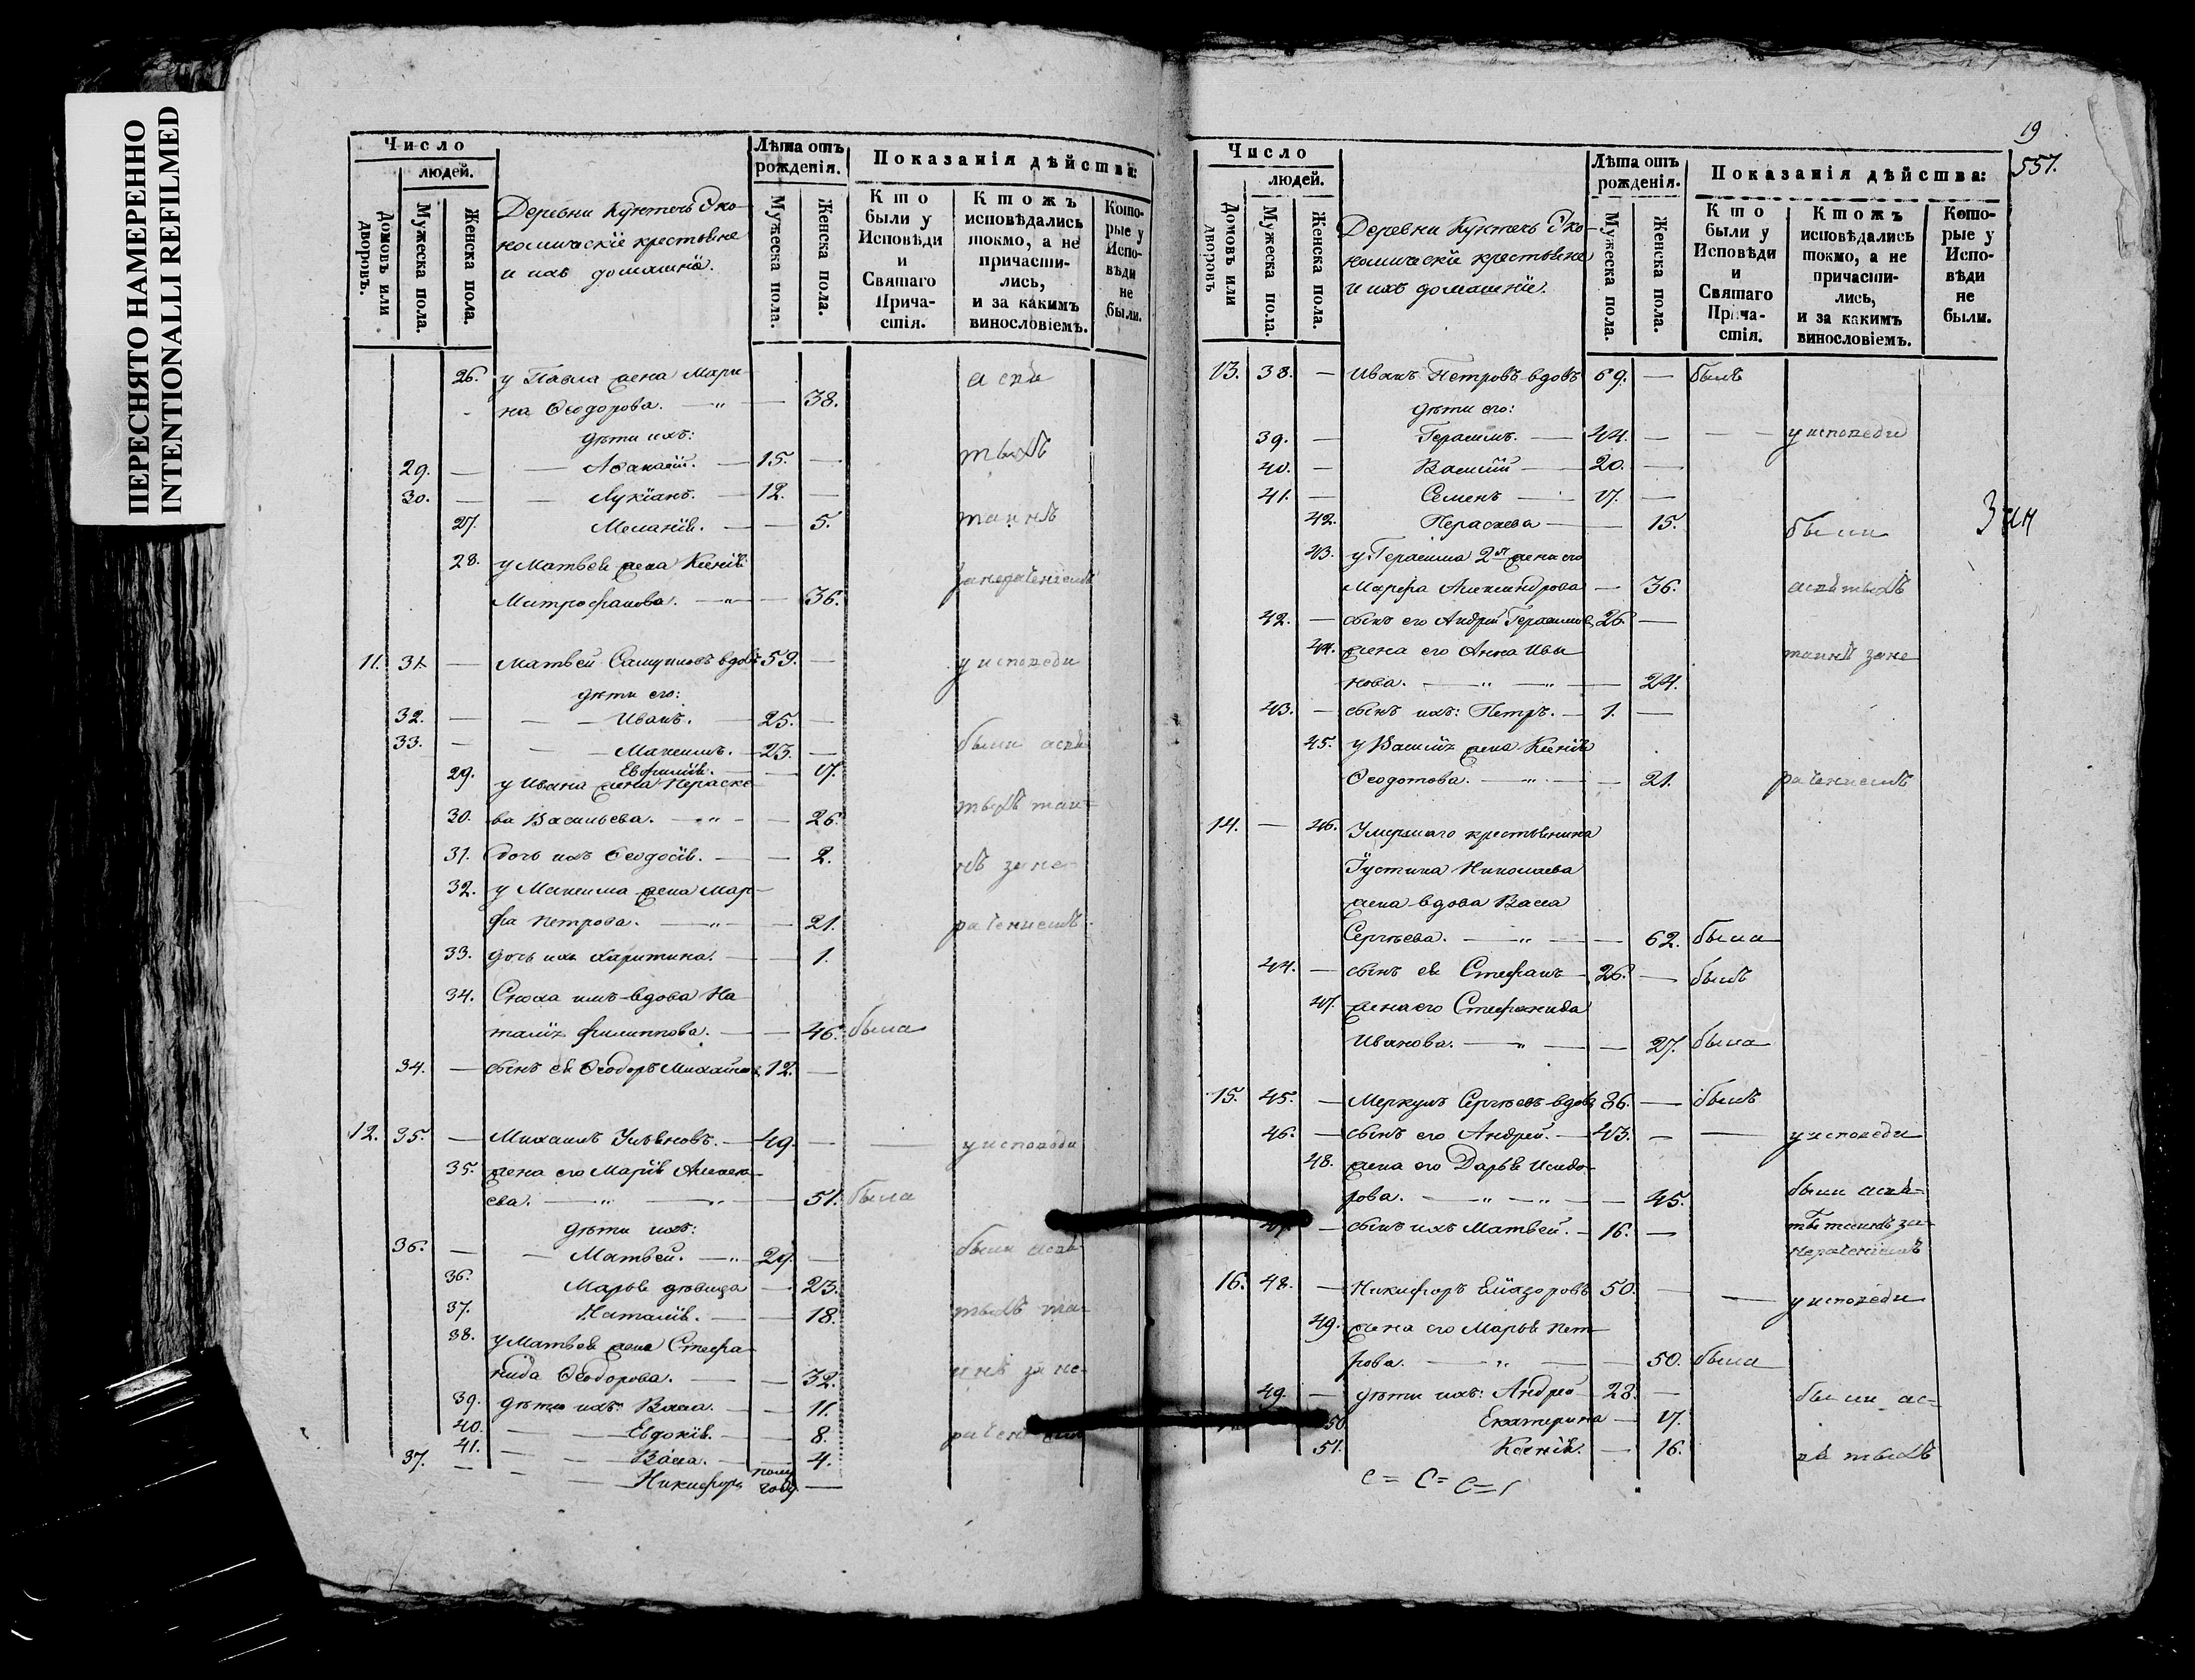 ПЕРЕСНЯТО НАМЕРЕННО
INTENTIONALLI REFILMED
Число
людей.
Домовъ или дворовъ.
Мужеска пола.
Женска пола.
Деревни Кунтечь Эко-
номическіе крестьяне
и ихъ домашніе.
Лѣта отъ рожденія.
Мужеска пола.
Женска пола.
Показанія дѣйства:
Кто были у Исповѣди и Святаго Причастія.
Ктожъ исповѣдались токмо, а не причастились, и за какимъ винословіемъ.
Которые у Исповѣди не были.
26. у Павла жена Мари-
на Ѳеодорова. — 38.
дѣти ихъ:
29. — Аѳанасій. — 15. —
30. — Лукіанъ. — 12. —
27. Меланія. — 5.
28. у Матвея жена Ксенія
Митрофанова. — 36.
за нераченіемъ
11. 31. — Матвей Самуиловъ вдовъ 59. — у исповеди
дѣти его:
32. — Иванъ. — 25. —
33. — Максимъ. — 23. — были
29. Евфимія. — 17.
у Ивана жена Параске-
30. ва Васильева. — 26.
31. дочь ихъ Ѳеодосія. — 2. за не-
32. у Максима жена Мар-
фа Петрова. — 21. раченіемъ
33. дочь ихъ Харитина. — 1.
34. Сноха имъ вдова На-
талія Филиппова. — 46. была
34. — сынъ ея Ѳеодоръ Михайлов 12. —
12. 35. — Михаилъ Ульяновъ. — 49. — у исповеди
35. жена его Марія Алексе-
ева. — 51. была
дѣти ихъ:
36. — Матвей. — 29. — были
36. Марья дѣвица — 23.
37. Наталія. — 18.
38. у Матвея жена Стефа-
нида Ѳеодорова. — 32. за не-
39. дѣти ихъ: Васса. — 11.
40. Евдокія. — 8.
41. Васса. — 4.
37. — Никифоръ полу году —
19
557.
Число
людей.
Домовъ или дворовъ
Мужеска пола.
Женска пола.
Деревни Кунтечь Эко-
номическіе крестьяне
и ихъ домашніе.
Лѣта отъ рожденія.
Мужеска пола.
Женска пола.
Показанія дѣйства:
Кто были у Исповѣди и Святаго Причастія.
Ктожъ исповѣдались токмо, а не причастились, и за какимъ винословіемъ.
Которые у Исповѣди не были.
13. 38. — Иванъ Петровъ вдовъ 69. — былъ
дѣти его:
39. — Герасимъ. — 44. — у исповеди
40. — Василій — 20. —
41. — Семенъ — 17. —
42. Параскева — 15. были
43. у Герасима 2я жена его
Марфа Александрова — 36.
42. — сынъ его Андрей Герасимов 26. —
44. жена его Анна Ива-
нова. — 24. за не
43. — сынъ ихъ: Петръ. — 1. —
45. у Василія жена Ксенія
Ѳеодотова. — 21. раченіемъ
14. — 46. Умершаго крестьянина
Іустина Николаева
жена вдова Васса
Сергѣева. — 62. была
44. — сынъ ея Стефанъ — 26. — былъ
47. жена его Стефанида
Иванова. — 27. была
15. 45. — Меркулъ Сергѣевъ вдовъ 86. — былъ
46. — сынъ его Андрей. — 43. — у исповеди
48. жена его Дарья Исидо-
рова. — 45. были
47. — сынъ ихъ Матвей. — 16. — за
нераченіемъ
16. 48. — Никифоръ Еліазоровъ 50. — у исповеди
49. жена его Марья Пет-
рова. — 50. была
49. — дѣти ихъ: Андрей — 28. — были
50. Екатерина — 17.
51. Ксенія. — 16.